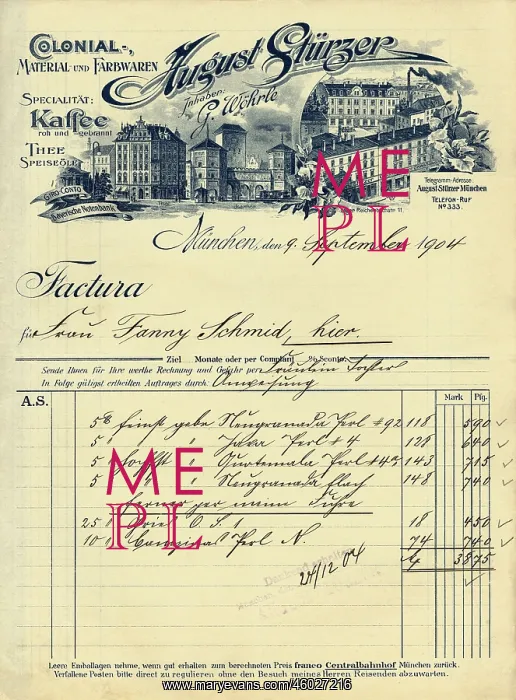 COLONIAL-,
MATERIAL- UND FARBWAREN
August Stürzer
Inhaber:
G. Wöhrle
SPECIALITÄT:
Kaffee
roh und gebrannt
THEE
SPEISEÖLE
GIRO CONTO
Bayerische Notenbank
Telegramm-Adresse:
August Stürzer München
TELEFON-RUF
No 333.
ME
PL
München, den 9. September 1904
Factura
für Frau Fanny Schmid, hier.
Ziel Monate oder per Comptant % Sconto.
Sende Ihnen für Ihre werthe Rechnung und Gefahr per Fräulein Tochter
In Folge gütigst ertheilten Auftrages durch: Anweisung
A.S. Mark Pfg.
5 feinst gebr Neugranada Perl # 92 118 5 90
5 " Java Perl # 4 128 6 40
5 " Guatemala Perl 143 7 15
5 " Neugranada flach 148 7 40
ferner per meine Fuhre
25 18 4 50
10 Perl N. 74 7 40
38 75
ME
PL
24/12 04
Leere Emballagen nehme, wenn gut erhalten zum berechneten Preis franco Centralbahnhof München zurück.
Verfallene Posten bitte direct zu reguliren ohne den Besuch meines Herren Reisenden abzuwarten.
www.maryevans.com/46027216